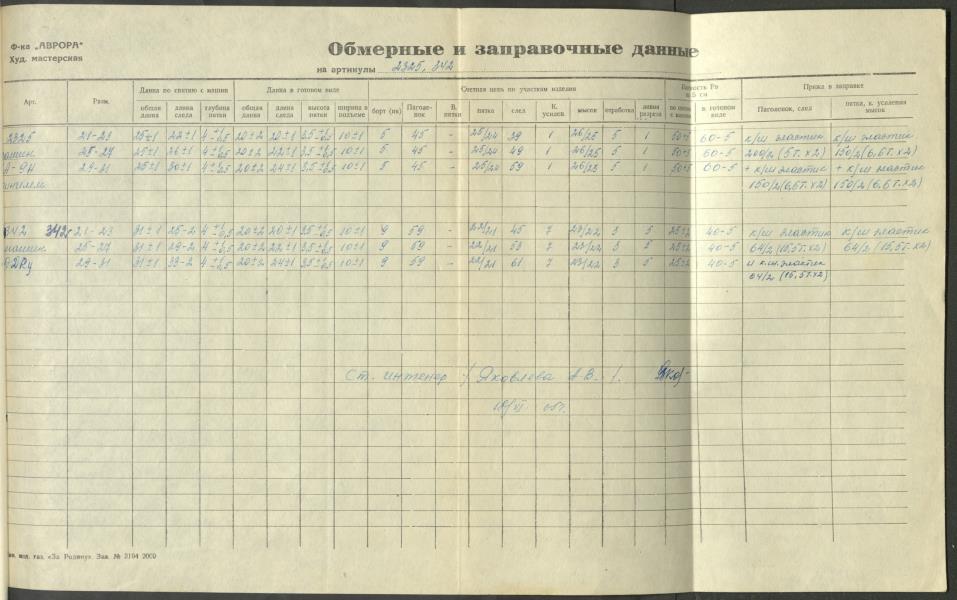 Ф-ка „АВРОРА"
Худ. мастерская
Обмерные и заправочные данные
на артикулы 2325, 342
Арт. Разм. Длина по снятию с машин Длина в готовом виде Счетная цепь по участкам изделия Рв 0,5 см Пряжа в заправке
общая длина длина следа глубина пятки общая длина длина следа высота пятки ширина в подъеме борт (ик) Паголенок В. пятки пятка след К. усилен. мысок отработка линия разреза в готовом виде Паголенок, след пятка, к. усиления мысок
2325 21-23 25±1 22±1 4±0,5 20±2 20±1 3,5±0,5 10±1 5 45 - 25/24 39 1 26/25 5 1 50±5 60-5 к/ш эластик к/ш эластик
25-27 25±1 26±1 4±0,5 20±2 22±1 3,5±0,5 10±1 5 45 - 25/24 49 1 26/25 5 1 50±5 60-5 200/2 (5т.х2) 150/2 (6,6т.х2)
29-31 25±1 30±1 4±0,5 20±2 24±1 3,5±0,5 10±1 5 45 - 25/24 59 1 26/25 5 1 50±5 60-5 + к/ш эластик + к/ш эластик
150/2 (6,6т.х2) 150/2 (6,6т.х2)
342 342 21-23 31±1 25-2 4±0,5 20±2 20±1 3,5±0,5 10±1 9 59 - 22/21 45 7 23/22 3 5 25±2 40-5 к/ш эластик к/ш эластик
25-27 31±1 29-2 4±0,5 20±2 22±1 3,5±0,5 10±1 9 59 - 22/21 53 7 23/22 3 5 25±2 40-5 64/2 (15,5т.х2) 64/2 (15,5т.х2)
29-31 31±1 33-2 4±0,5 20±2 24±1 3,5±0,5 10±1 9 59 - 22/21 61 7 23/22 3 5 25±2 40-5 и к.ш. эластик
64/2 (15,5т.х2)
Ст. инженер / Яковлева А.В. /.
газ. «За Родину» Зак. № 3194 2000